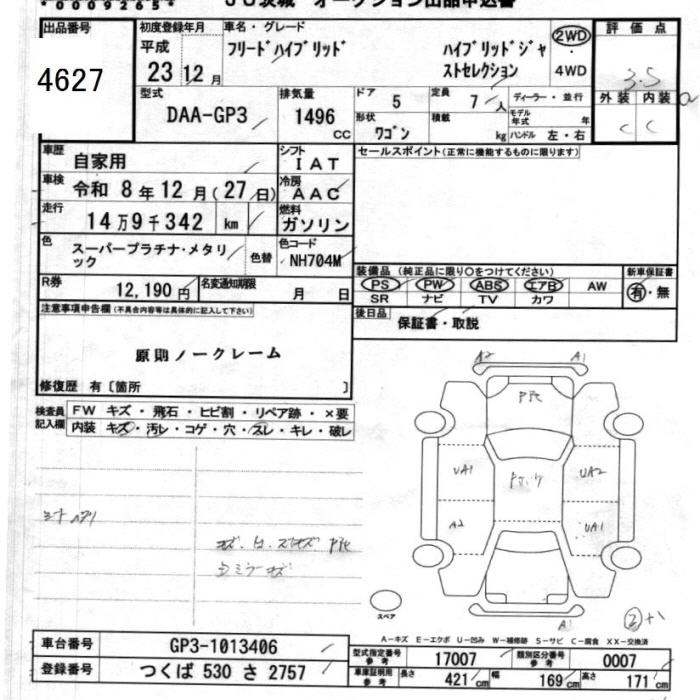 *0009265*
JU茨城 オークション出品申込書
出品番号
4627
初度登録年月
平成
23年12月
車名・グレード
フリードハイブリッド
ハイブリッドジャ
ストセレクション
2WD
4WD
評価点
3.5
外装 内装
C C
型式
DAA-GP3
排気量
1496
cc
ドア
5
定員
7人
ディーラー・並行
形状
ワゴン
積載
kg
モデル年式 年
ハンドル 左・右
車歴
自家用
シフト
IAT
セールスポイント(正常に機能するものに限ります)
車検
令和 8年12月(27日)
冷房
AAC
走行
14万9千342 km
燃料
ガソリン
色
スーパープラチナ・メタリ
ック
色替
色コード
NH704M
R券
12,190円
名変通知期限
月 日
装備品 (純正品に限り○をつけてください)
PS PW ABS エアB AW
SR ナビ TV カワ
新車保証書
有・無
後日品
保証書・取説
注意事項申告欄(不具合内容等は具体的に記入して下さい)
原則ノークレーム
修復歴 有〔箇所 〕
検査員記入欄
FW キズ・飛石・ヒビ割・リペア跡・×要
内装 キズ・汚レ・コゲ・穴・スレ・キレ・破レ
A2
A1
UA1
UA2
A2
UA1
A1
スペア
A-キズ E-エクボ U-凹み W-補修跡 S-サビ C-腐食 XX-交換済
車台番号
GP3-1013406
登録番号
つくば 530 さ 2757
型式指定番号
参考
17007
類別区分番号
参考
0007
車庫証明用
参考
長さ
421cm
幅
169cm
高さ
171cm